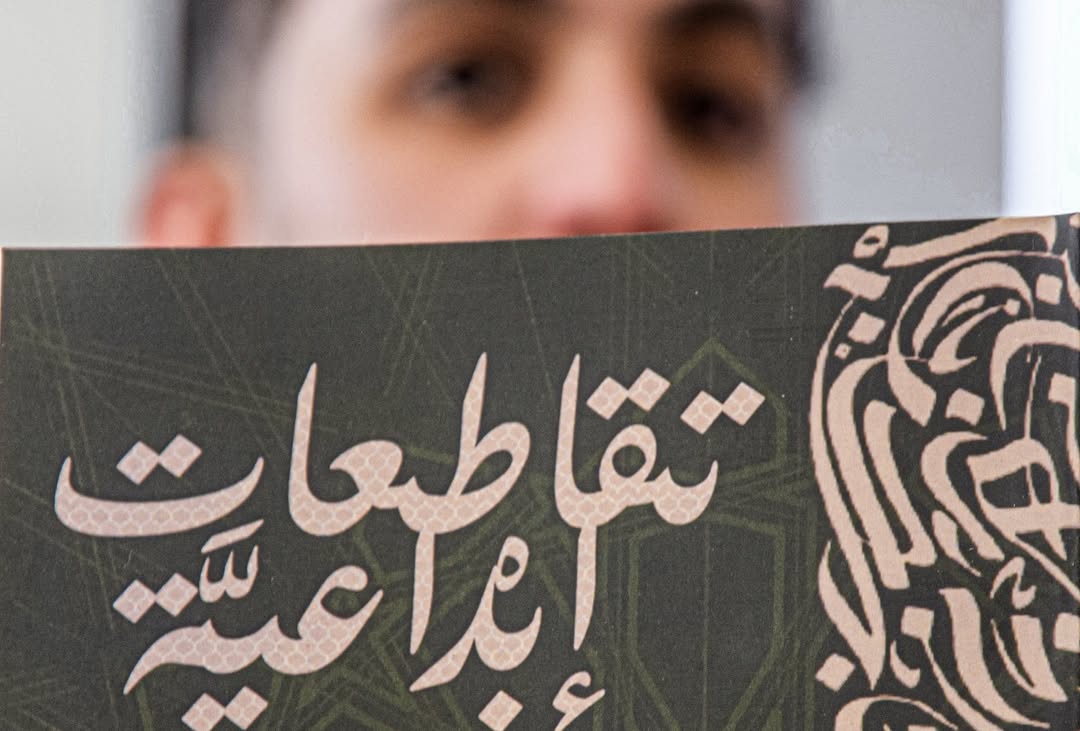 تقاطعات
إبْداعيَّة